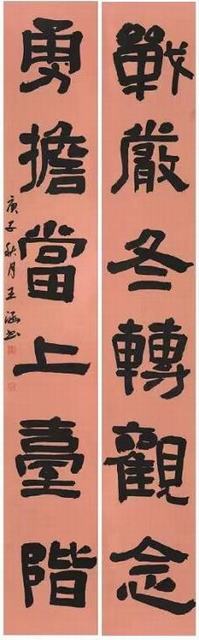 戰嚴冬轉觀念
勇擔當上臺階
庚子秋月王涵书